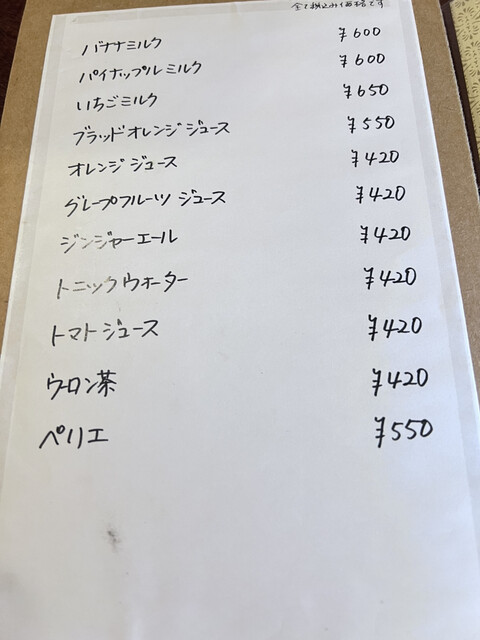 全て税込み価格です
バナナミルク ¥600
パイナップルミルク ¥600
いちごミルク ¥650
ブラッドオレンジジュース ¥550
オレンジジュース ¥420
グレープフルーツジュース ¥420
ジンジャーエール ¥420
トニックウォーター ¥420
トマトジュース ¥420
ウーロン茶 ¥420
ペリエ ¥550